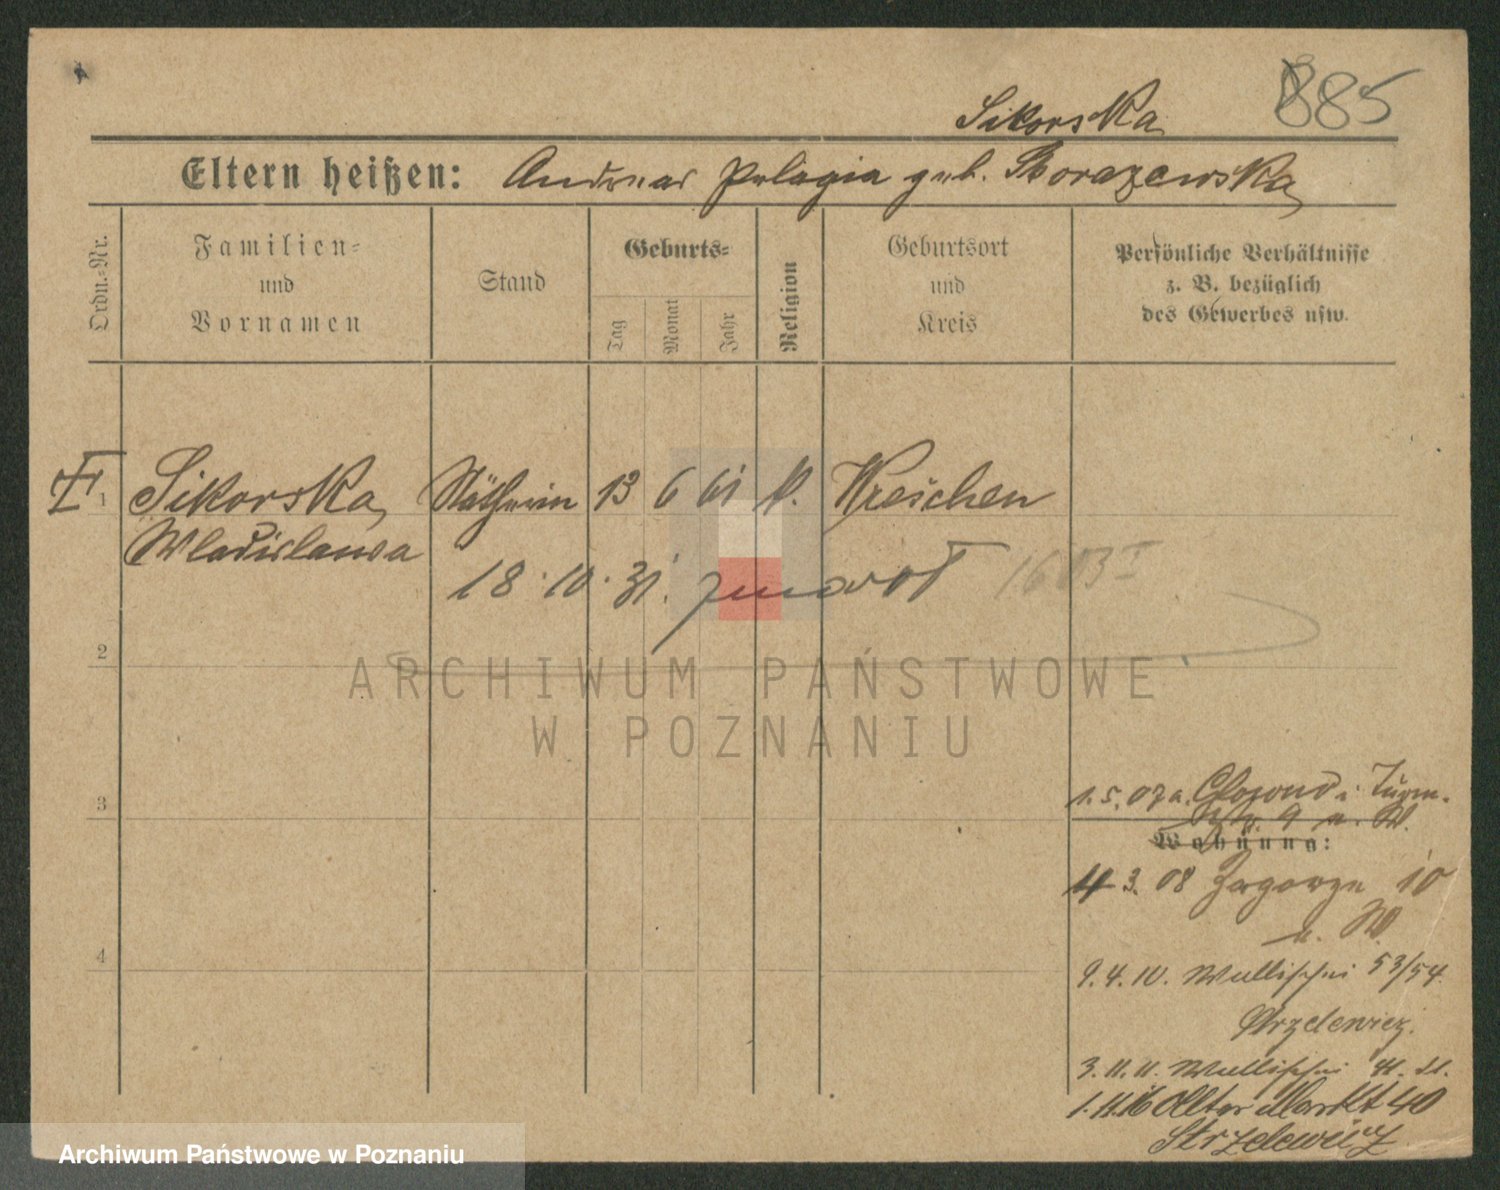 885
Sikorska
Eltern heißen: Andreas Pelagia geb. Morazewska
Ordn.=Nr.
Familien=
und
Vornamen
Stand
Geburts=
Tag
Monat
Jahr
Religion
Geburtsort
und
Kreis
Persönliche Verhältnisse
z. B. bezüglich
des Gewerbes usw.
1
Sikorska Nätherin 13 6 61 k. Wreschen
Wladislawa
18. 10. 31. 1603 I
2
ARCHIWUM PAŃSTWOWE
W POZNANIU
3
1. 5. 07
9
Wohnung:
4. 3. 08 Zagorze 10
4
9. 4. 10. Wallischei 53/54
Strzelewicz.
3. 11. 11. Wallischei
1. 11. 16 Alter Markt 40
Strzelewicz
Archiwum Państwowe w Poznaniu